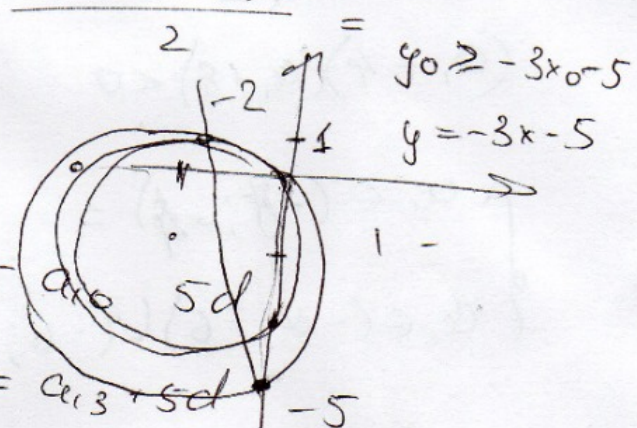 2 =
y₀ ≥ -3x₀-5
-2
1
y = -3x - 5
1 -
a₁₀ 5d
= a₁₃ + 5d
-5